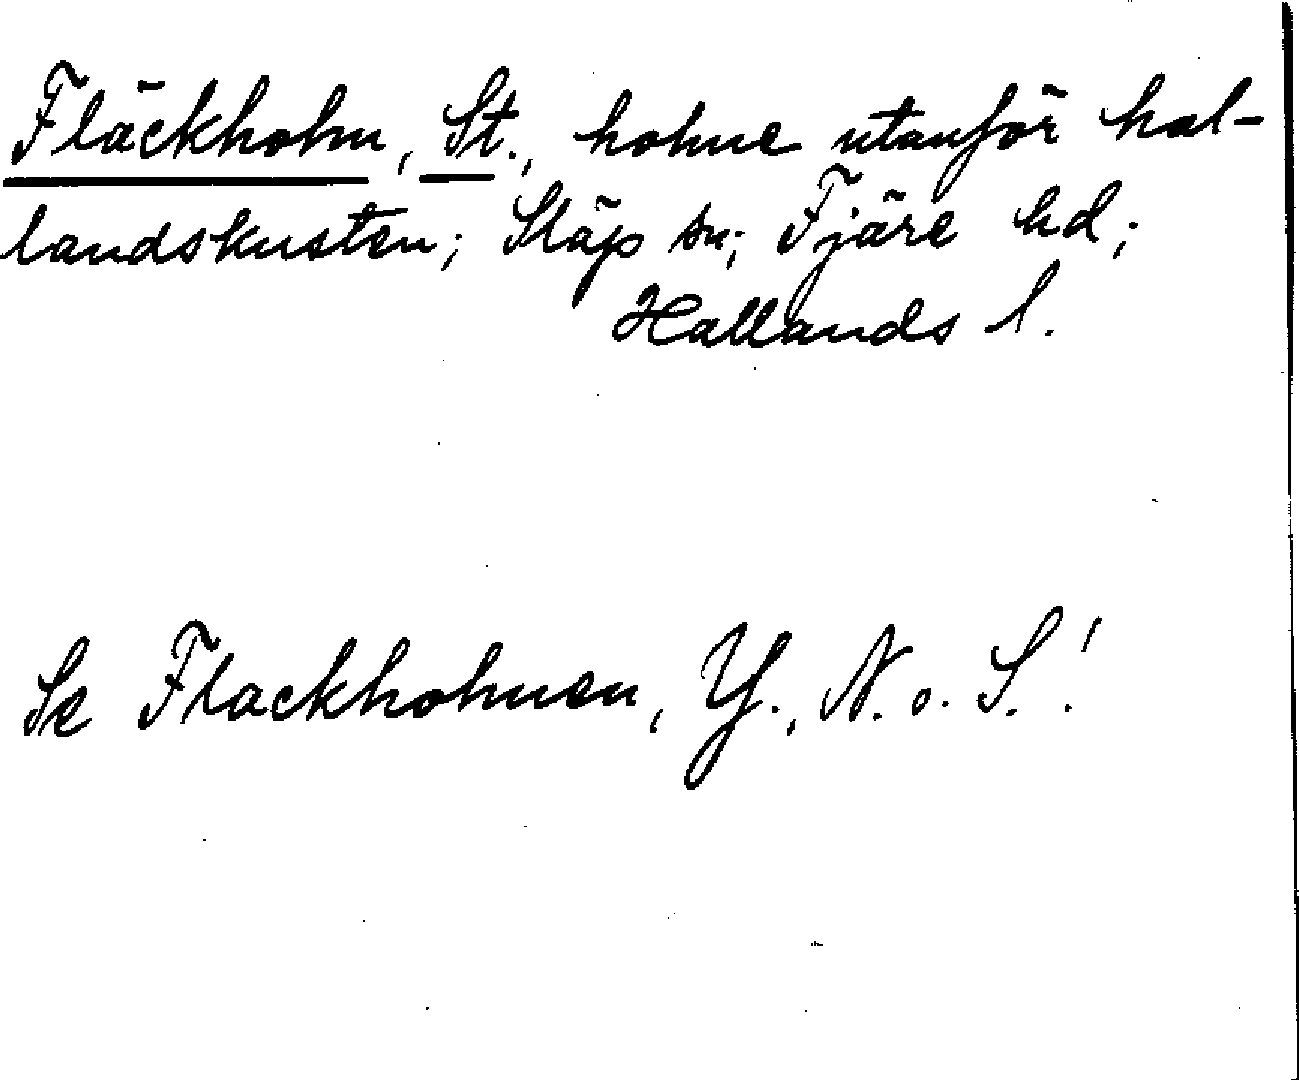 Fläckholm, St., holme utanför hal-
landskusten; Släp sn; Fjäre hd;
Hallands l.
Se Flackholmen, Y., N. o. S.!